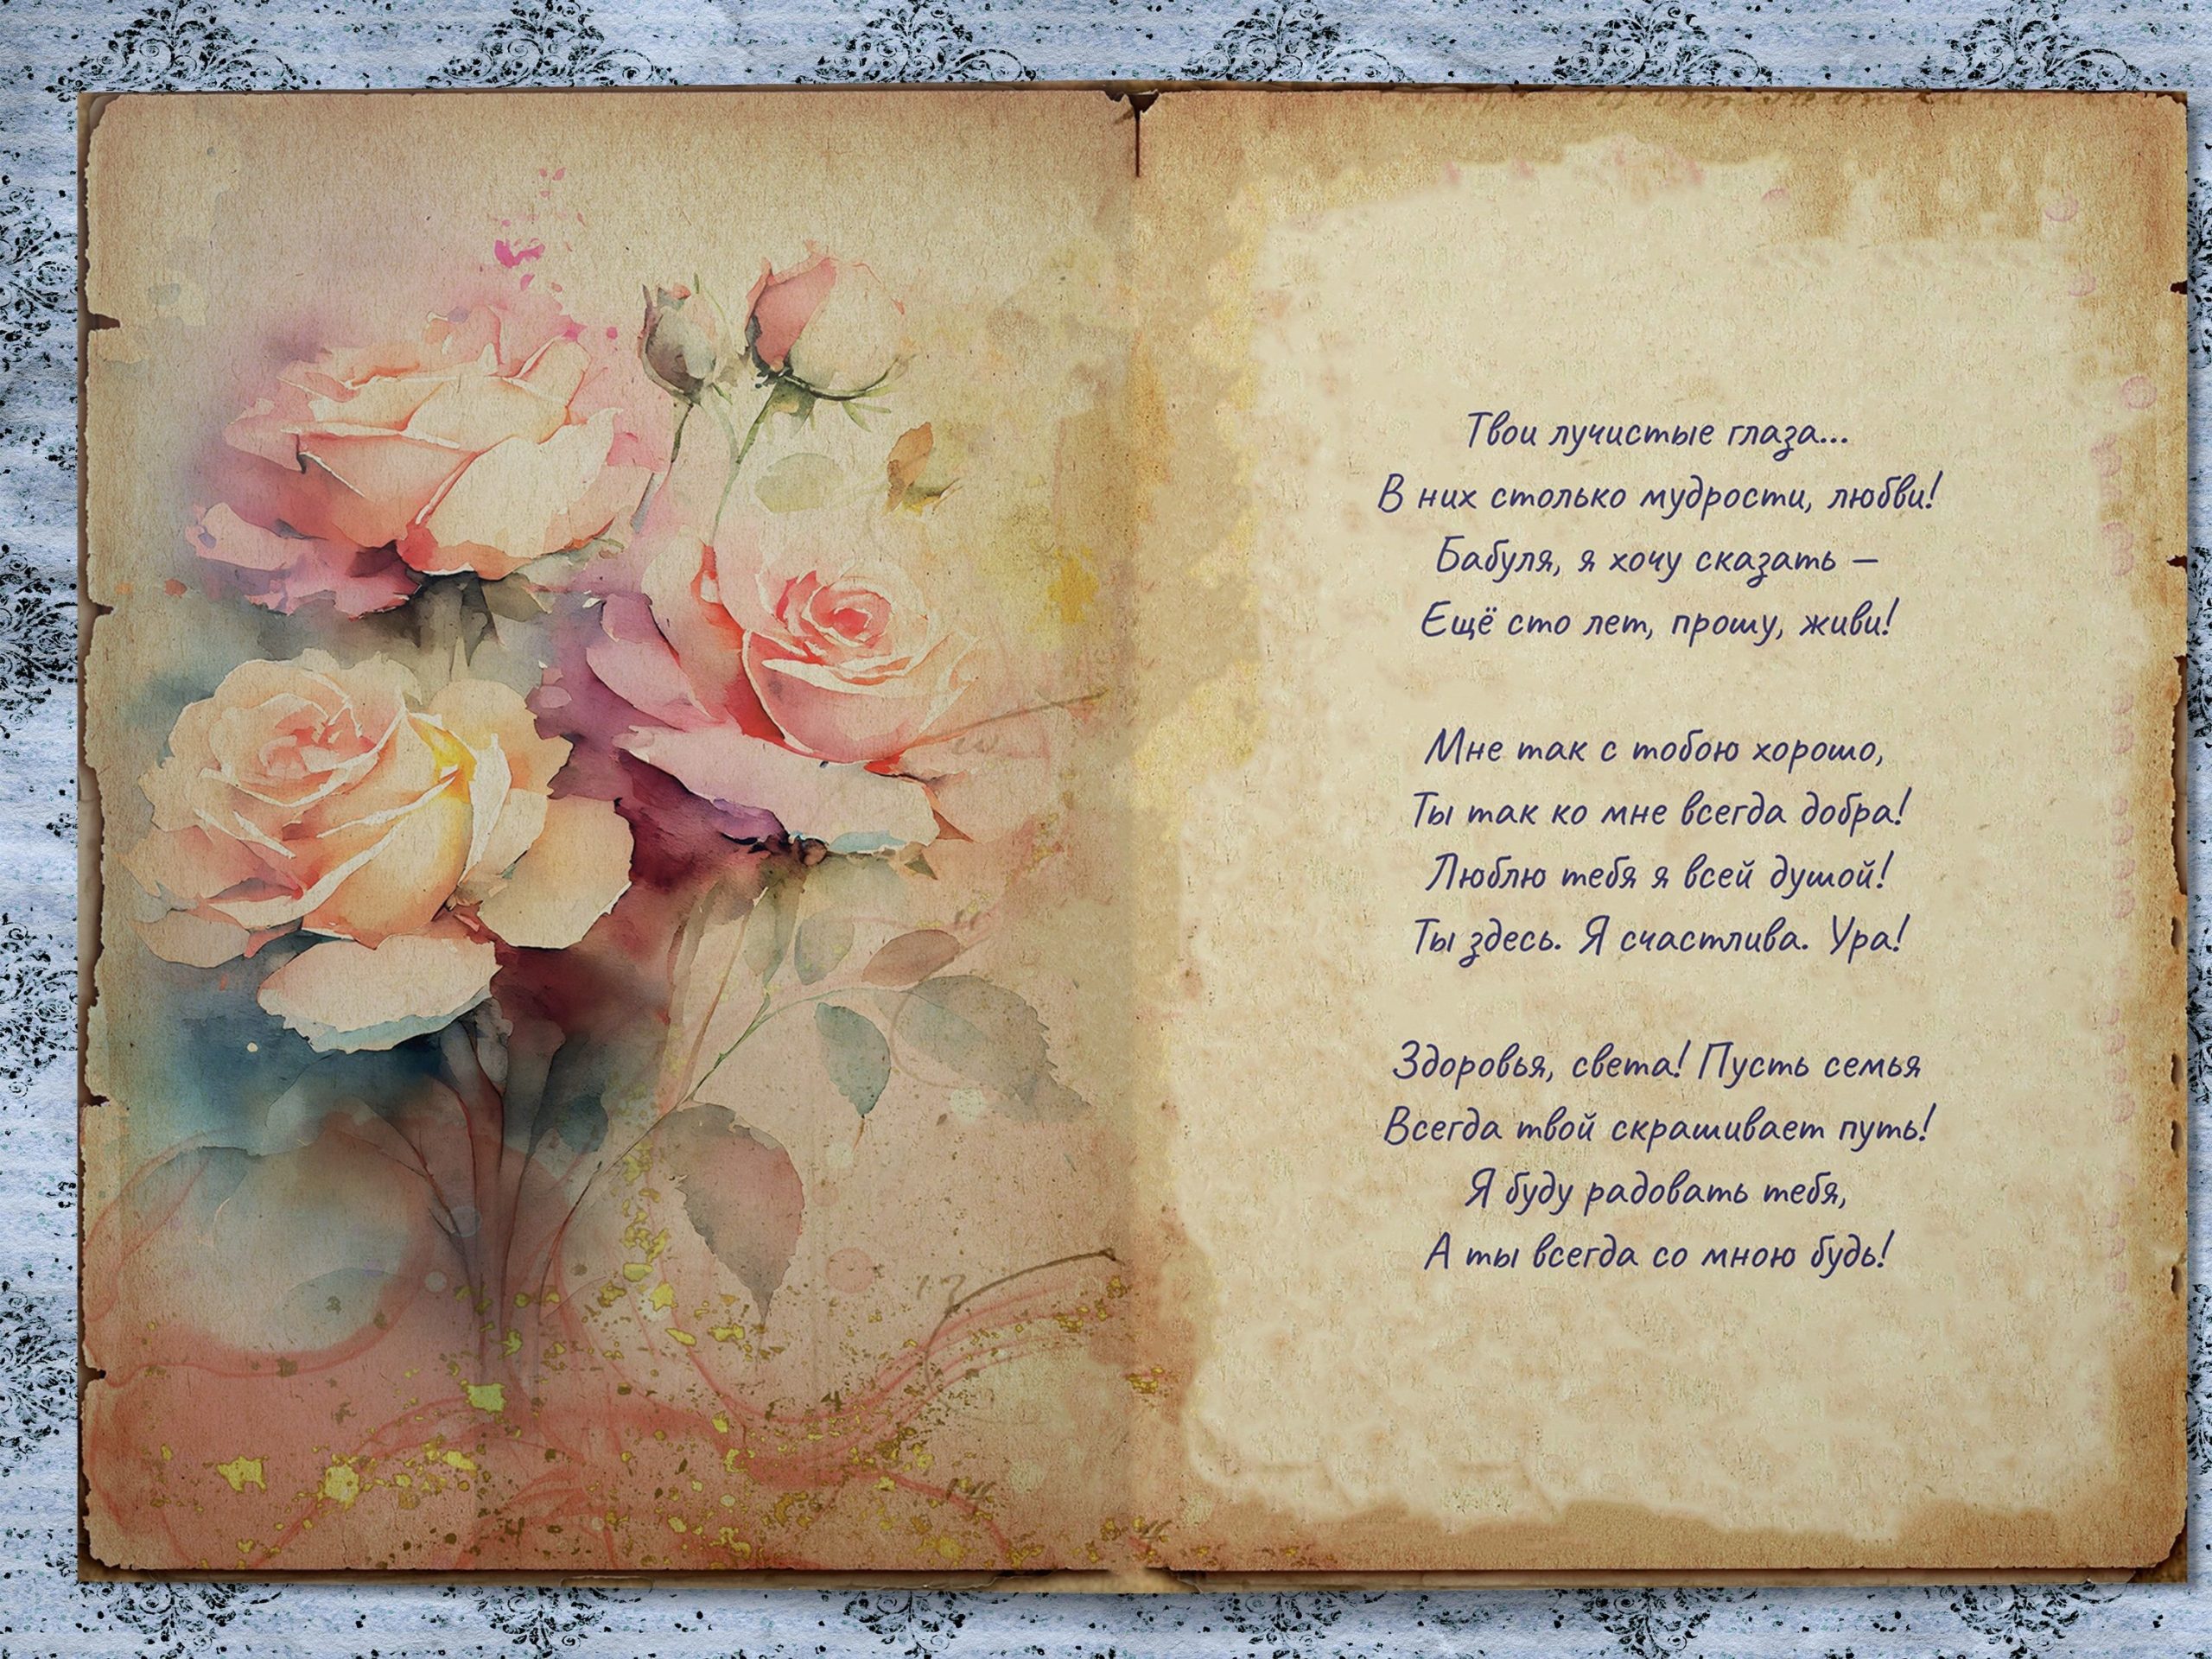 Твои лучистые глаза...
В них столько мудрости, любви!
Бабуля, я хочу сказать –
Ещё сто лет, прошу, живи!
Мне так с тобою хорошо,
Ты так ко мне всегда добра!
Люблю тебя я всей душой!
Ты здесь. Я счастлива. Ура!
Здоровья, света! Пусть семья
Всегда твой скрашивает путь!
Я буду радовать тебя,
А ты всегда со мною будь!